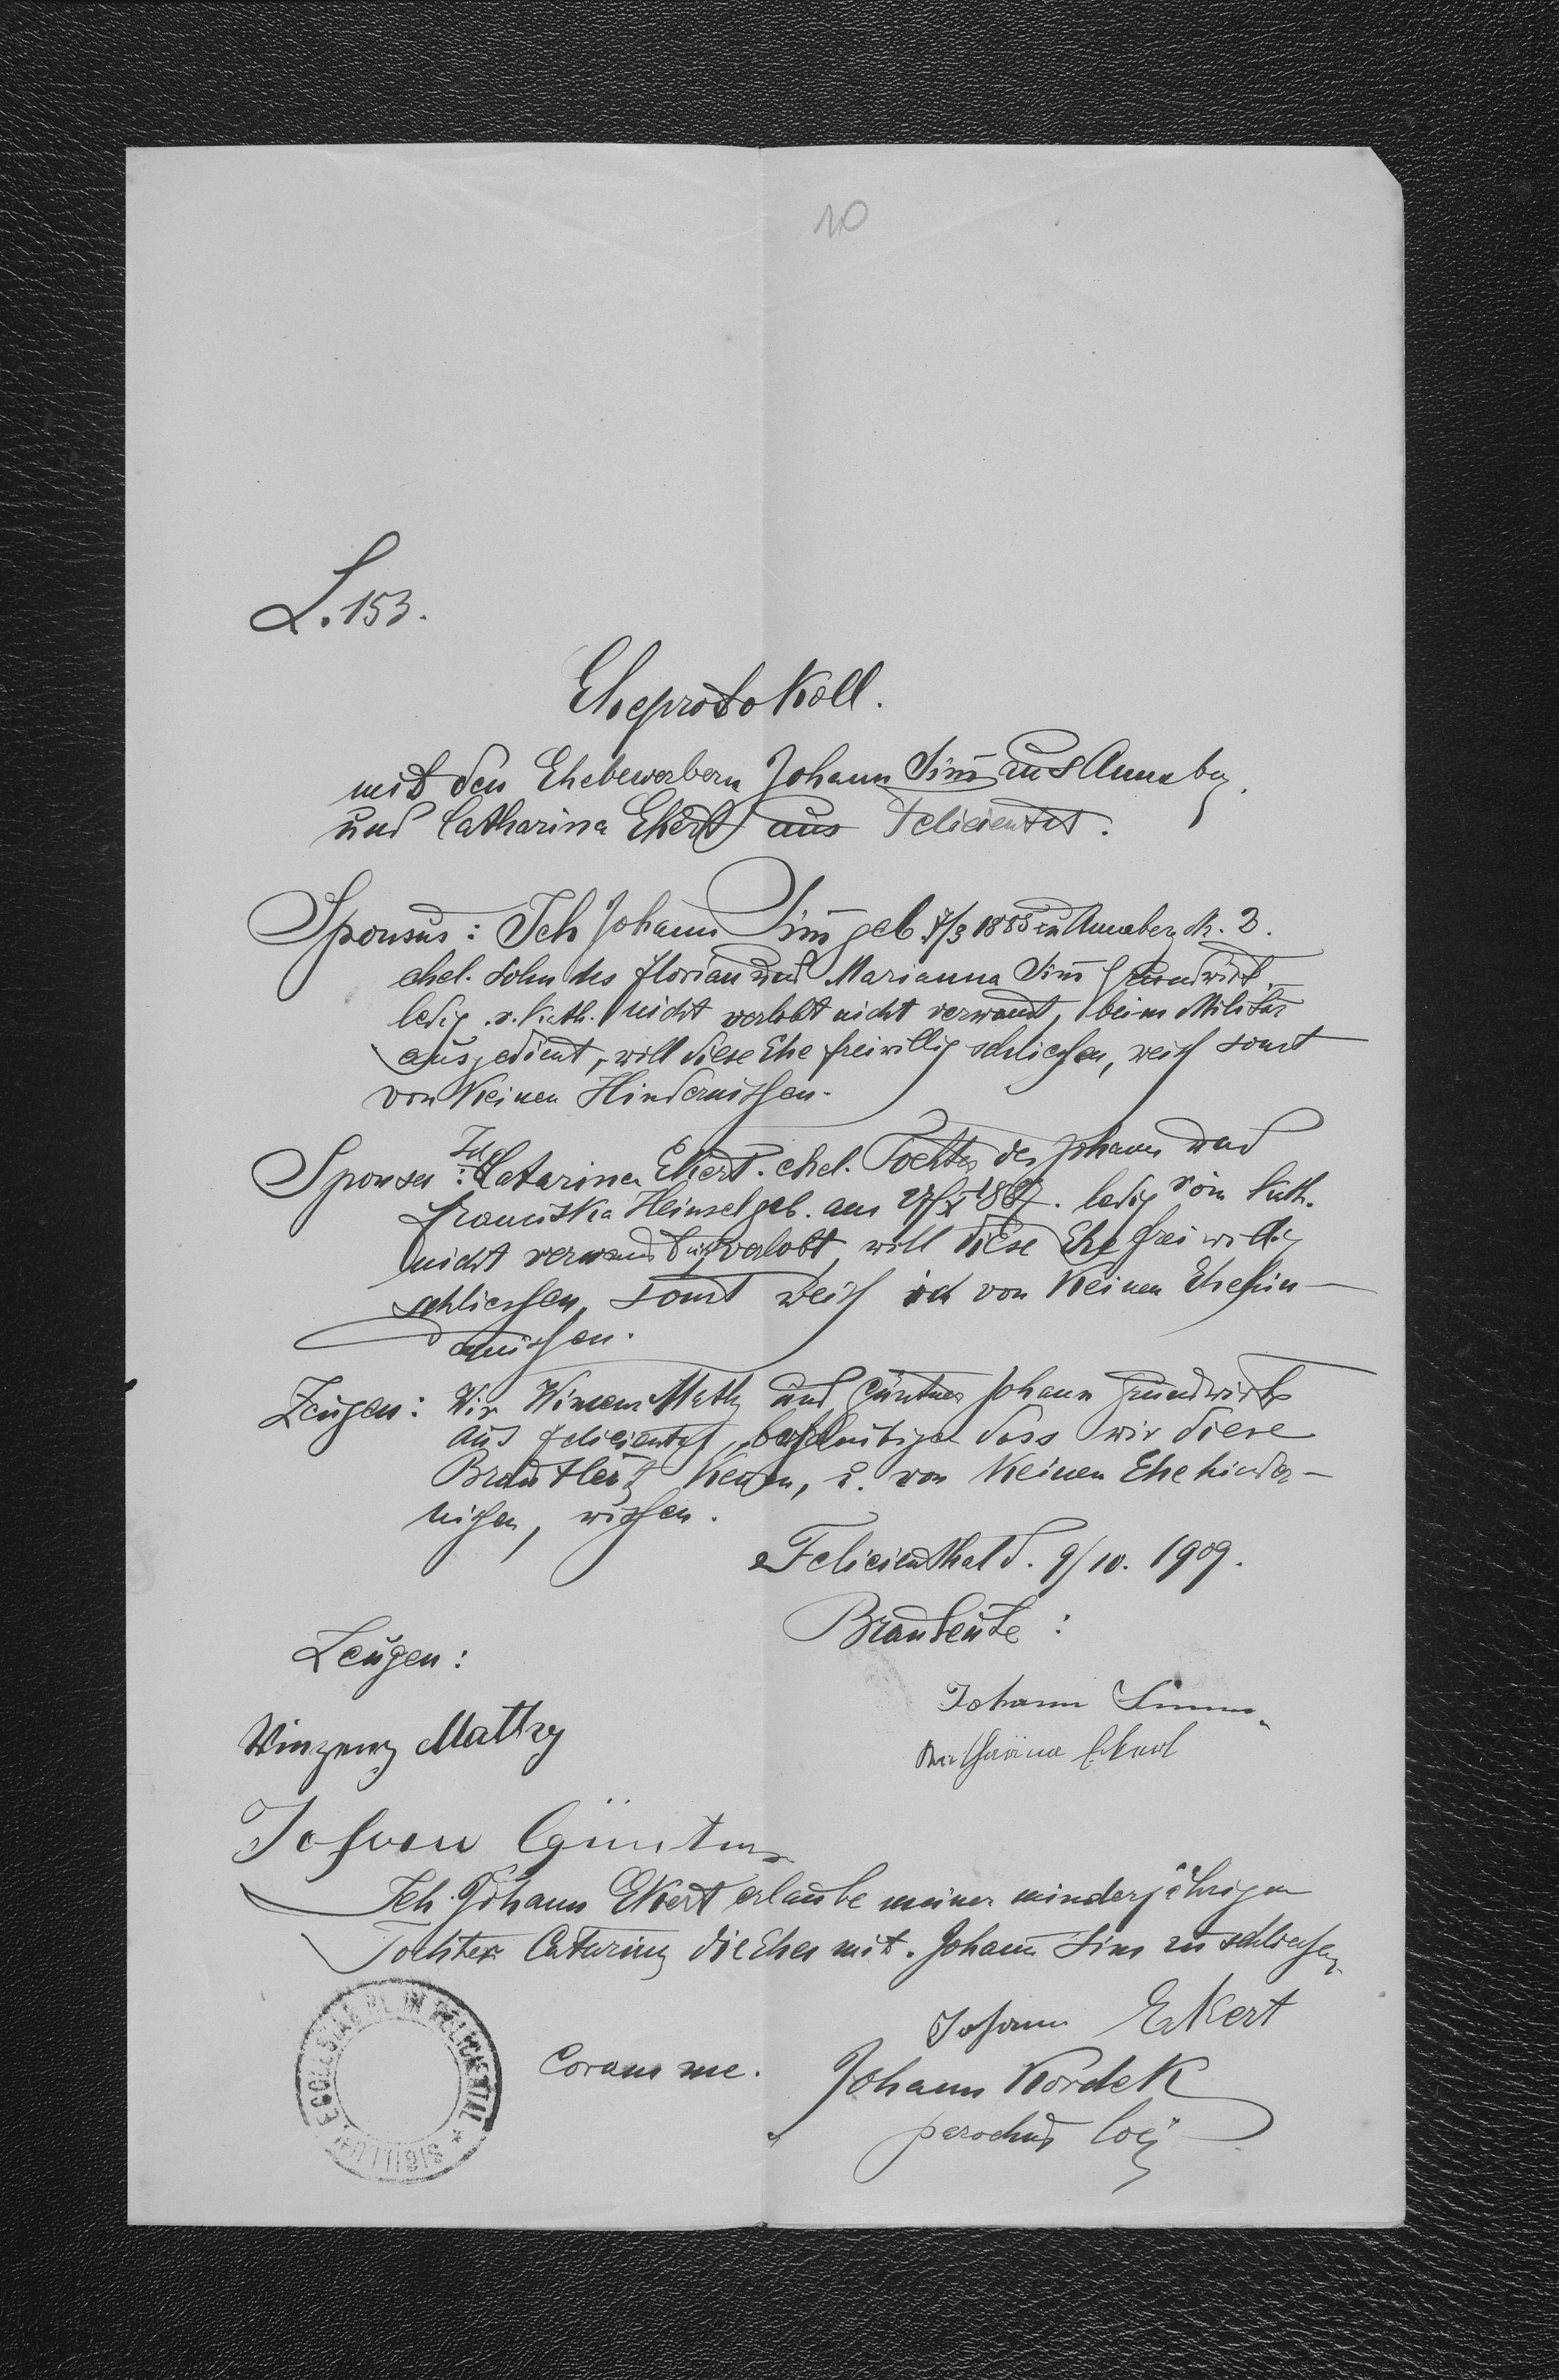 10
L. 153.
Eheprotokoll.
mit den Ehebewerbern Johann Sim̄ aus Annabg.
und Catharina Ekert aus Felicienthl.
Sponsus: Ich Johann Sim̄ geb. 7/3 1885 zu Annaberg N. 3.
ehel. Sohn des Florian und Marianna Sim̄ Grundwirt
ledig r. kath. nicht verlobt nicht verwandt, beim Militär
ausgedient, will diese Ehe freiwillig schliessen, weiss sonst
von keinen Hindernissen.
Sponsa: Ich Catarina Ekert. ehel. Tochter des Johann und
Franciska Heinsel geb. am ledig röm kath.
nicht verwandt nicht verlobt, will diese Ehe freiwillig
schliessen, sonst weiss ich von keinen Ehehin-
dernissen.
Zeugen: Wir Winzenz Matky und Güntner Johann Grundwirte
aus Felicienthl, dass wir diese
Brautleute kennen, u. von keinen Ehehinder-
nissen, wissen.
Felicienthal d. 9/10. 1909.
Zeugen:
Brauteute:
Winzenz Matky
Johann Simm
Katharina Ekert
Johann Güntner
Ich Johann Ekert erlaube meiner minderjährigen
Tochter Catarina die Ehe mit. Johann Sim zu schliessen
Johann Ekert
Coram me.
Johann Kordek
parochus loci
SIGILLUM ECCLESIAE IN FELICIENTHL *